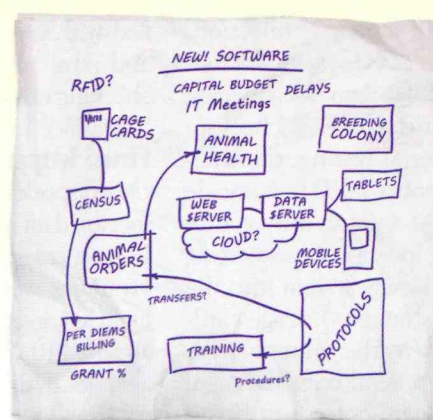 NEW! SOFTWARE
CAPITAL BUDGET DELAYS
IT Meetings
RFID?
CAGE
CARDS
ANIMAL
HEALTH
BREEDING
COLONY
CENSUS
WEB
$ERVER
DATA
$ERVER
TABLETS
CLOUD?
MOBILE
DEVICES
ANIMAL
ORDERS
TRANSFERS?
PER DIEMS
BILLING
GRANT %
TRAINING
Procedures?
PROTOCOLS